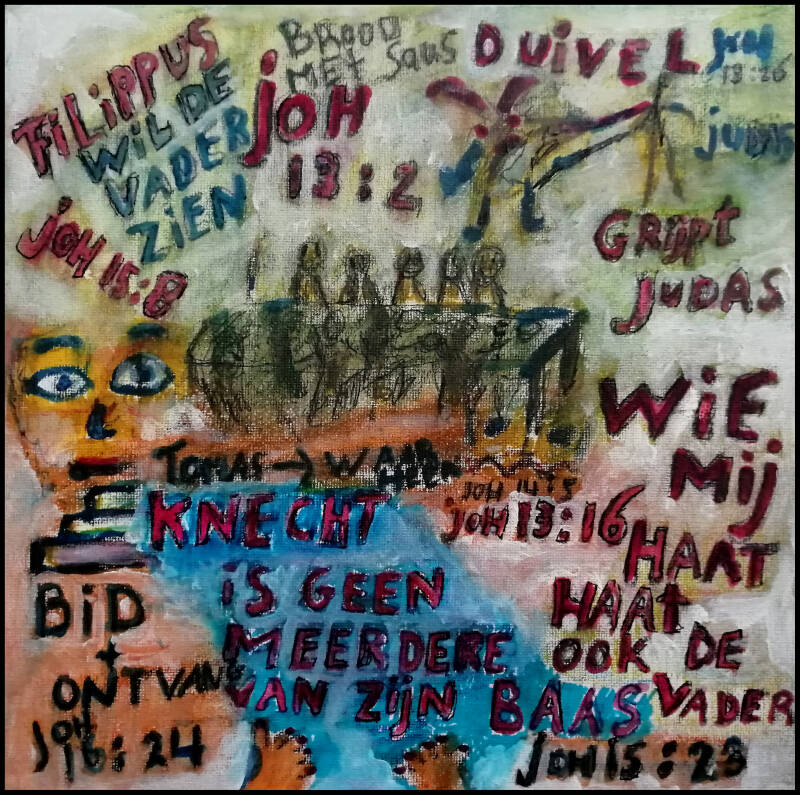 FiLiPPUS
WiLDE
VADER
ZiEN
jOH 15:8
BROOD
MET SAUS
jOH
13:2
DUiVEL
JOH
13:26
jUDAS
GRijPT
JUDAS
WiE
Mij
HAAT
HAAt
OOK DE
VADER
JOH 15:23
TOMAS → WAAR
HEEN
JOH 14:5
KNECHT
jOH 13:16
iS GEEN
MEERDERE
VAN ZijN BAAS
BiD
+
ONTVANG
JOH
16:24